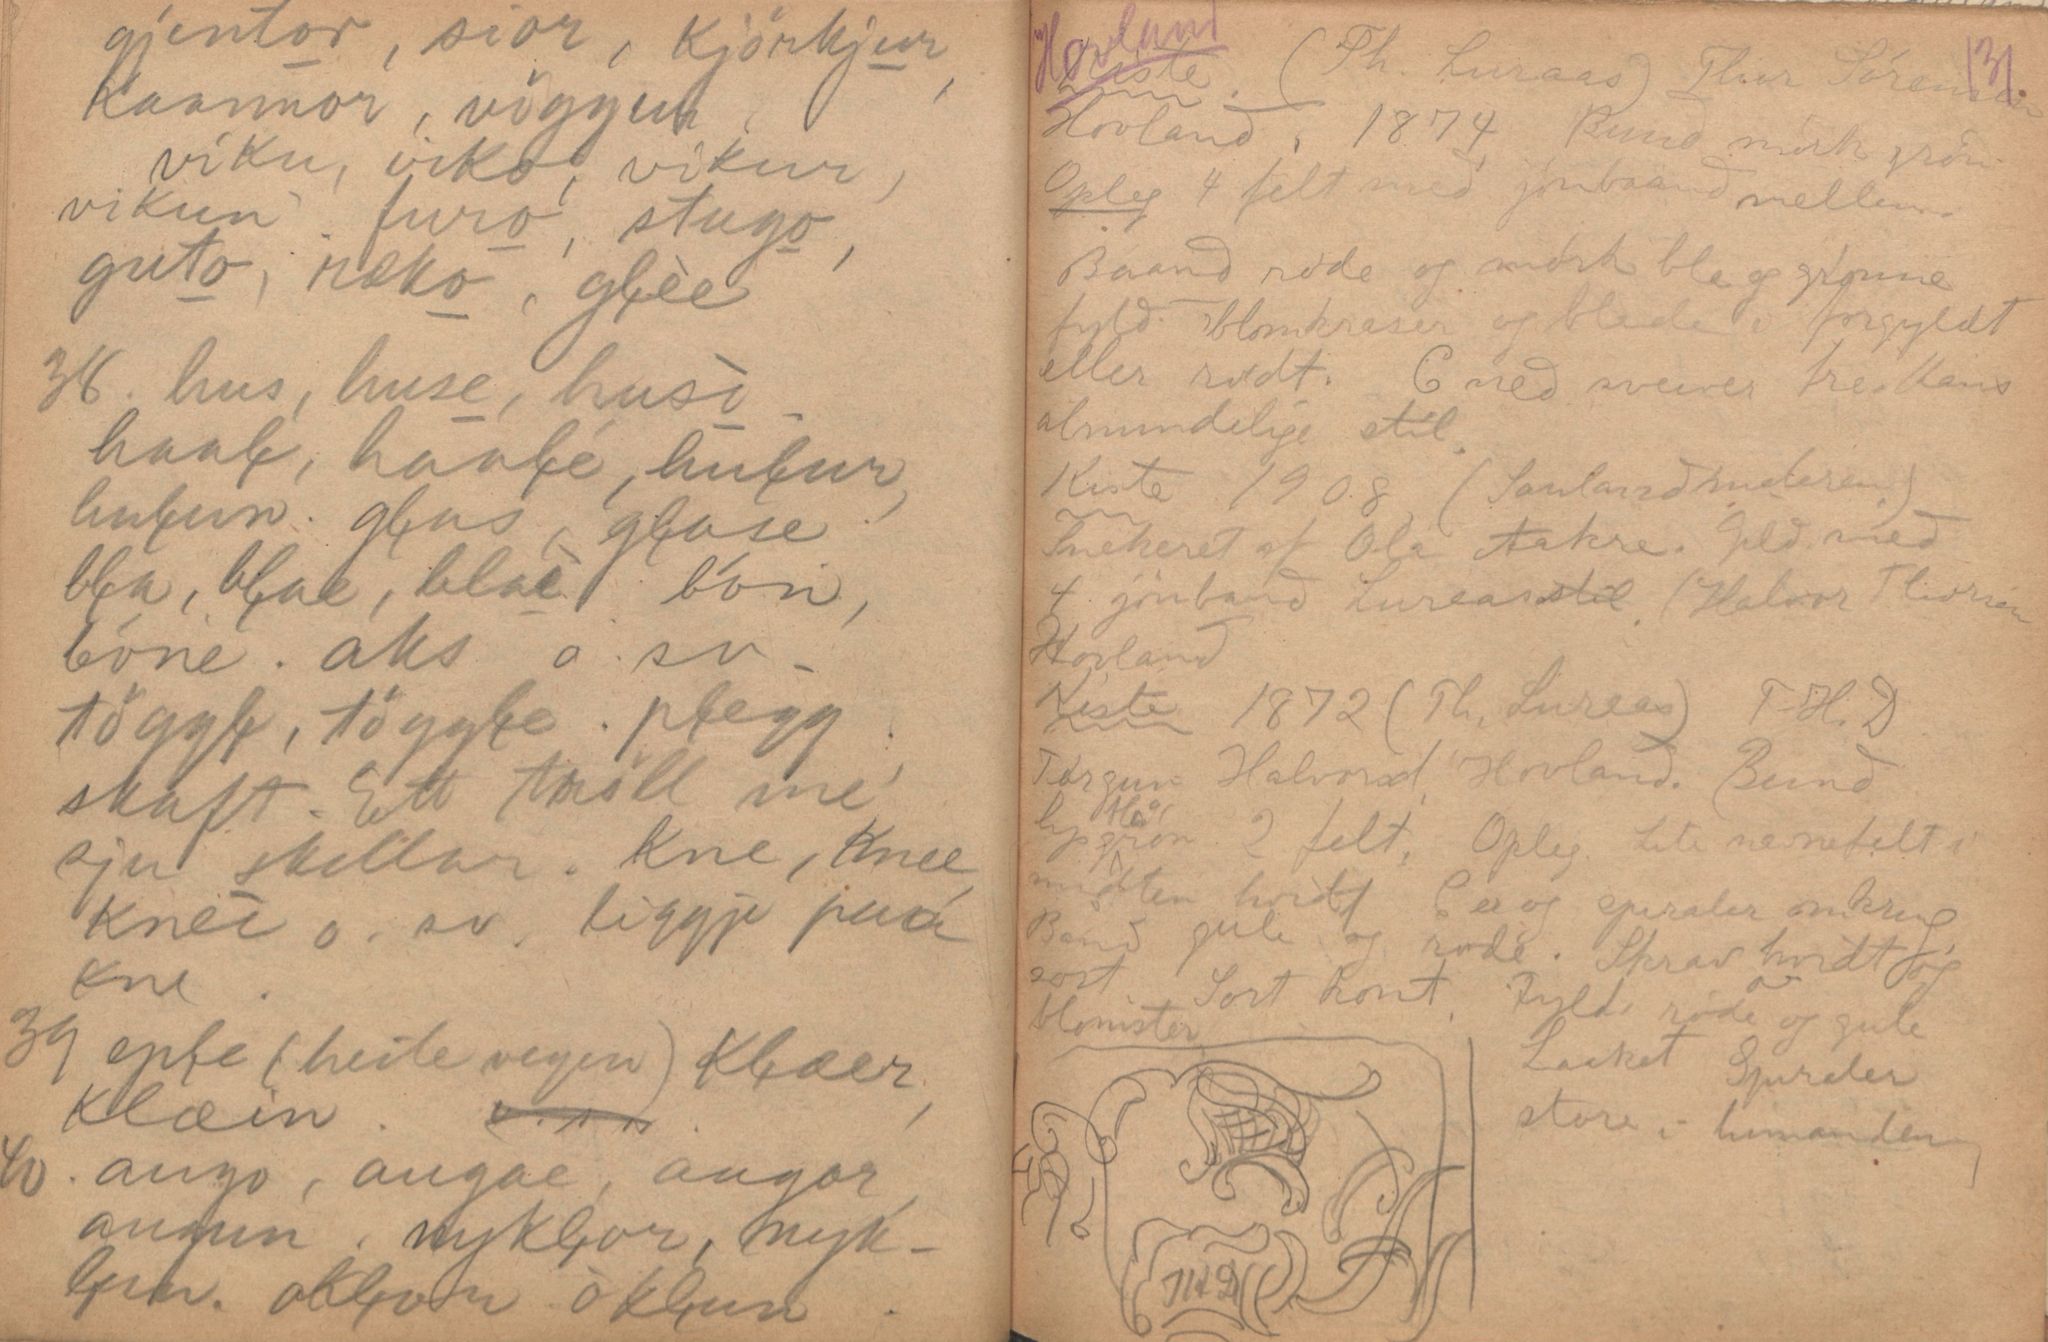 gjentor, sior, kjörkjur,
kaannor, vöggun,
viku, viko, vikur,
vikun. furo, stugo,
guto, ræko, głèe
38. hus, huse, husì.
haał, haałé, hułur,
hułun. głas, głase
bła, błae, blaè bón,
bóne. aks o. sv.
töggł, töggłe. płegg,
skaft. Ett tröll mé
sju skillar. kne, knee,
kneì o. sv. liggje paa
kne.
39 epłe (heile vegen) kłæer,
klæin.
40. augo, augae, augor,
augun. nykłor, nyk-
łun. okłor òkłun.
Hovland
131.
Kiste. (Th. Luraas) Thor Sörensen
Hovland, 1874 Bund mörk grön
Opleg 4 felt med jönbaand mellem.
Baand röde og mörk bla og grönne
fyld blomkraser og blade i forgyldt
eller rödt. C med sveiver hans
almindelige stil.
Kiste 1908 (Saulandmaleren)
Snekeret af Ola Aakre. med
4 jönband Lureasstil. (Halvor Thorsen
Hovland
Kiste 1872 (Th. Lureas) T. H. D
Torgun Halvorsd. Hovland. Bund
lysgrön 2 felt. Opleg Lite navnefelt i
midten hvidt C er og spiraler omkring
Band gule og röde. Skrav hvidt og
sort Sort kont. Fyld röde og gule
blomster
Lacket Spiraler
store
THD